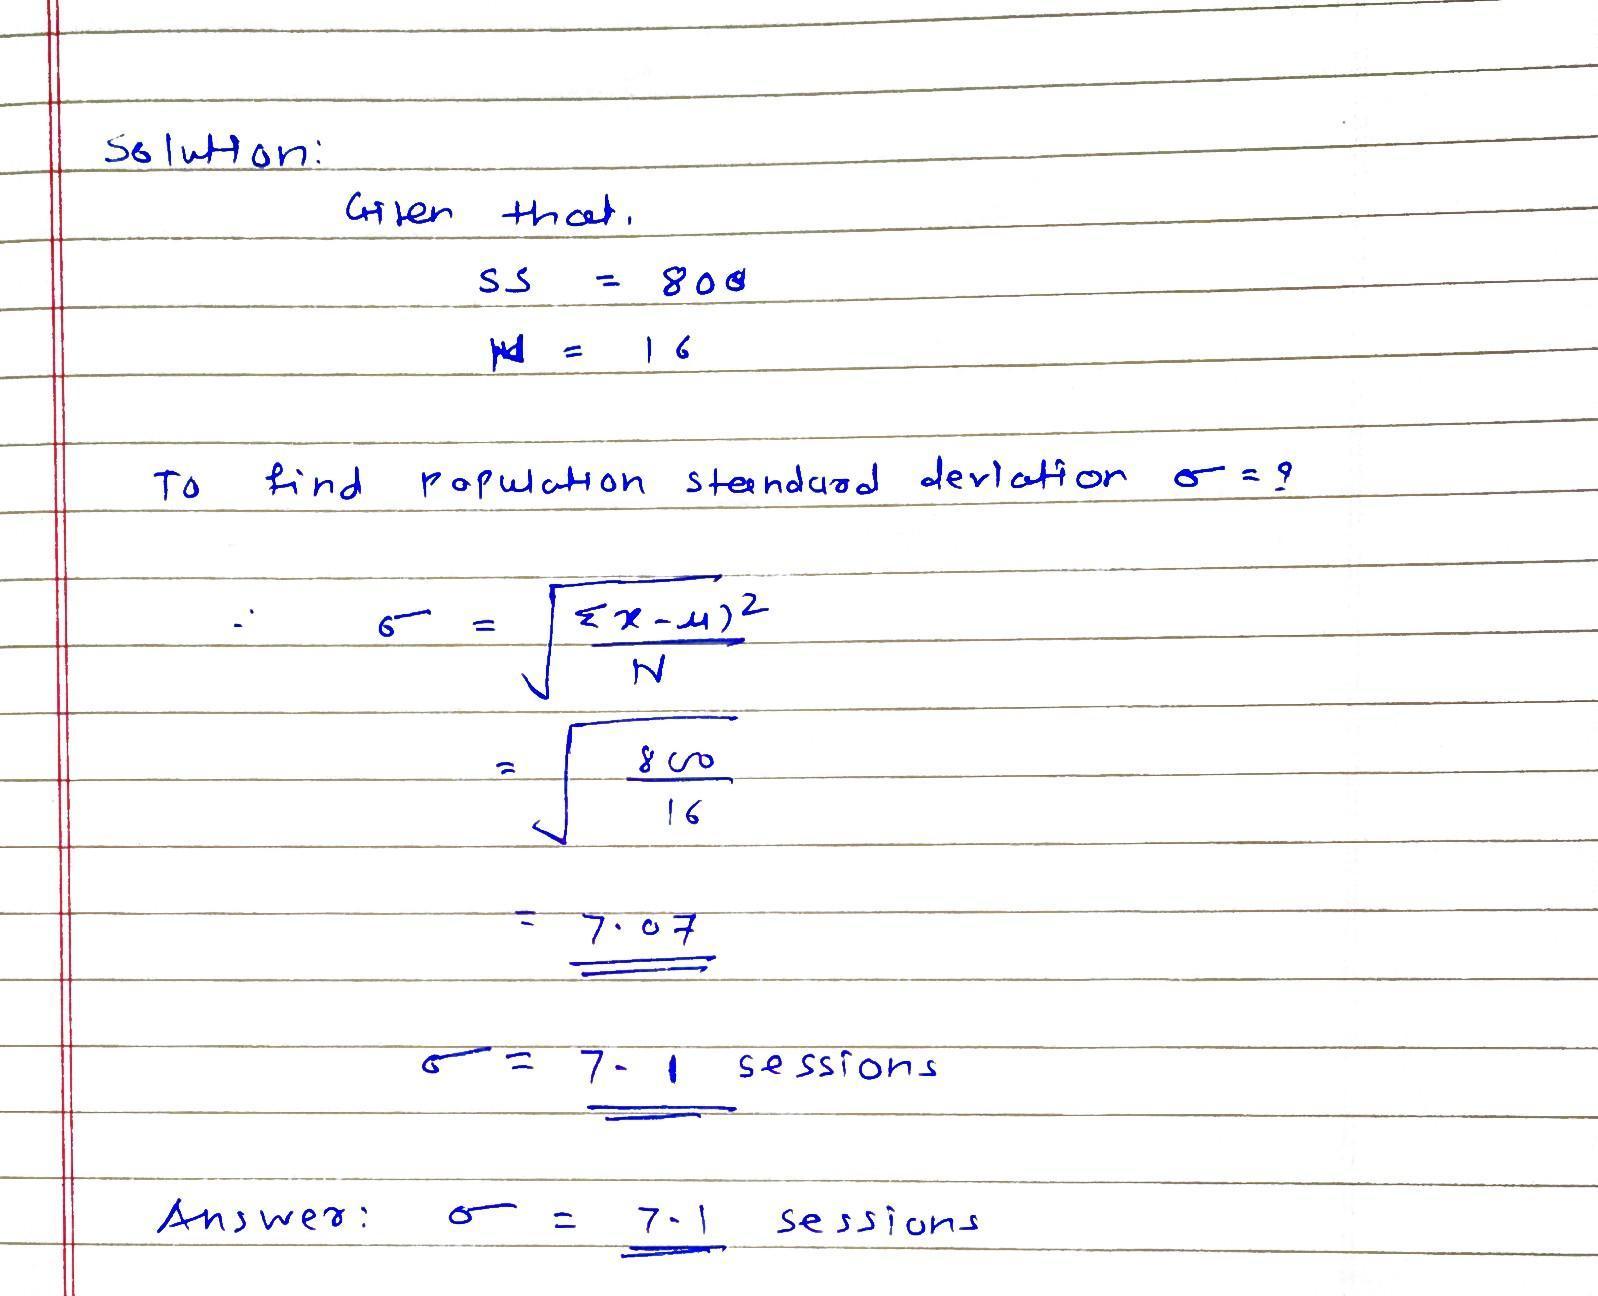 Solution:
Given that,
SS = 800
N = 16
To find population standard deviation σ = ?
∴ σ = √ Σx-μ)²
N
= √ 800
16
= 7.07
σ = 7.1 sessions
Answer: σ = 7.1 sessions